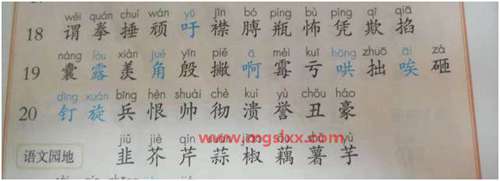 wèi quán chuí wán yū jīn bó píng bù píng qī qiā
18 谓 拳 捶 顽 吁 襟 膊 瓶 怖 凭 欺 掐
náng lòu xiàn jué yīn piē ā méi kuī hōng zhuō āi zá
19 囊 露 羡 角 殷 撇 啊 霉 亏 哄 拙 唉 砸
dīng xuán bīng hèn shuài chè kuì yù chǒu háo
20 钉 旋 兵 恨 帅 彻 溃 誉 丑 豪
www.mgslxx.com
jiǔ jiè
语文园地 韭 芥 芹 蒜 椒 藕 薯 芋